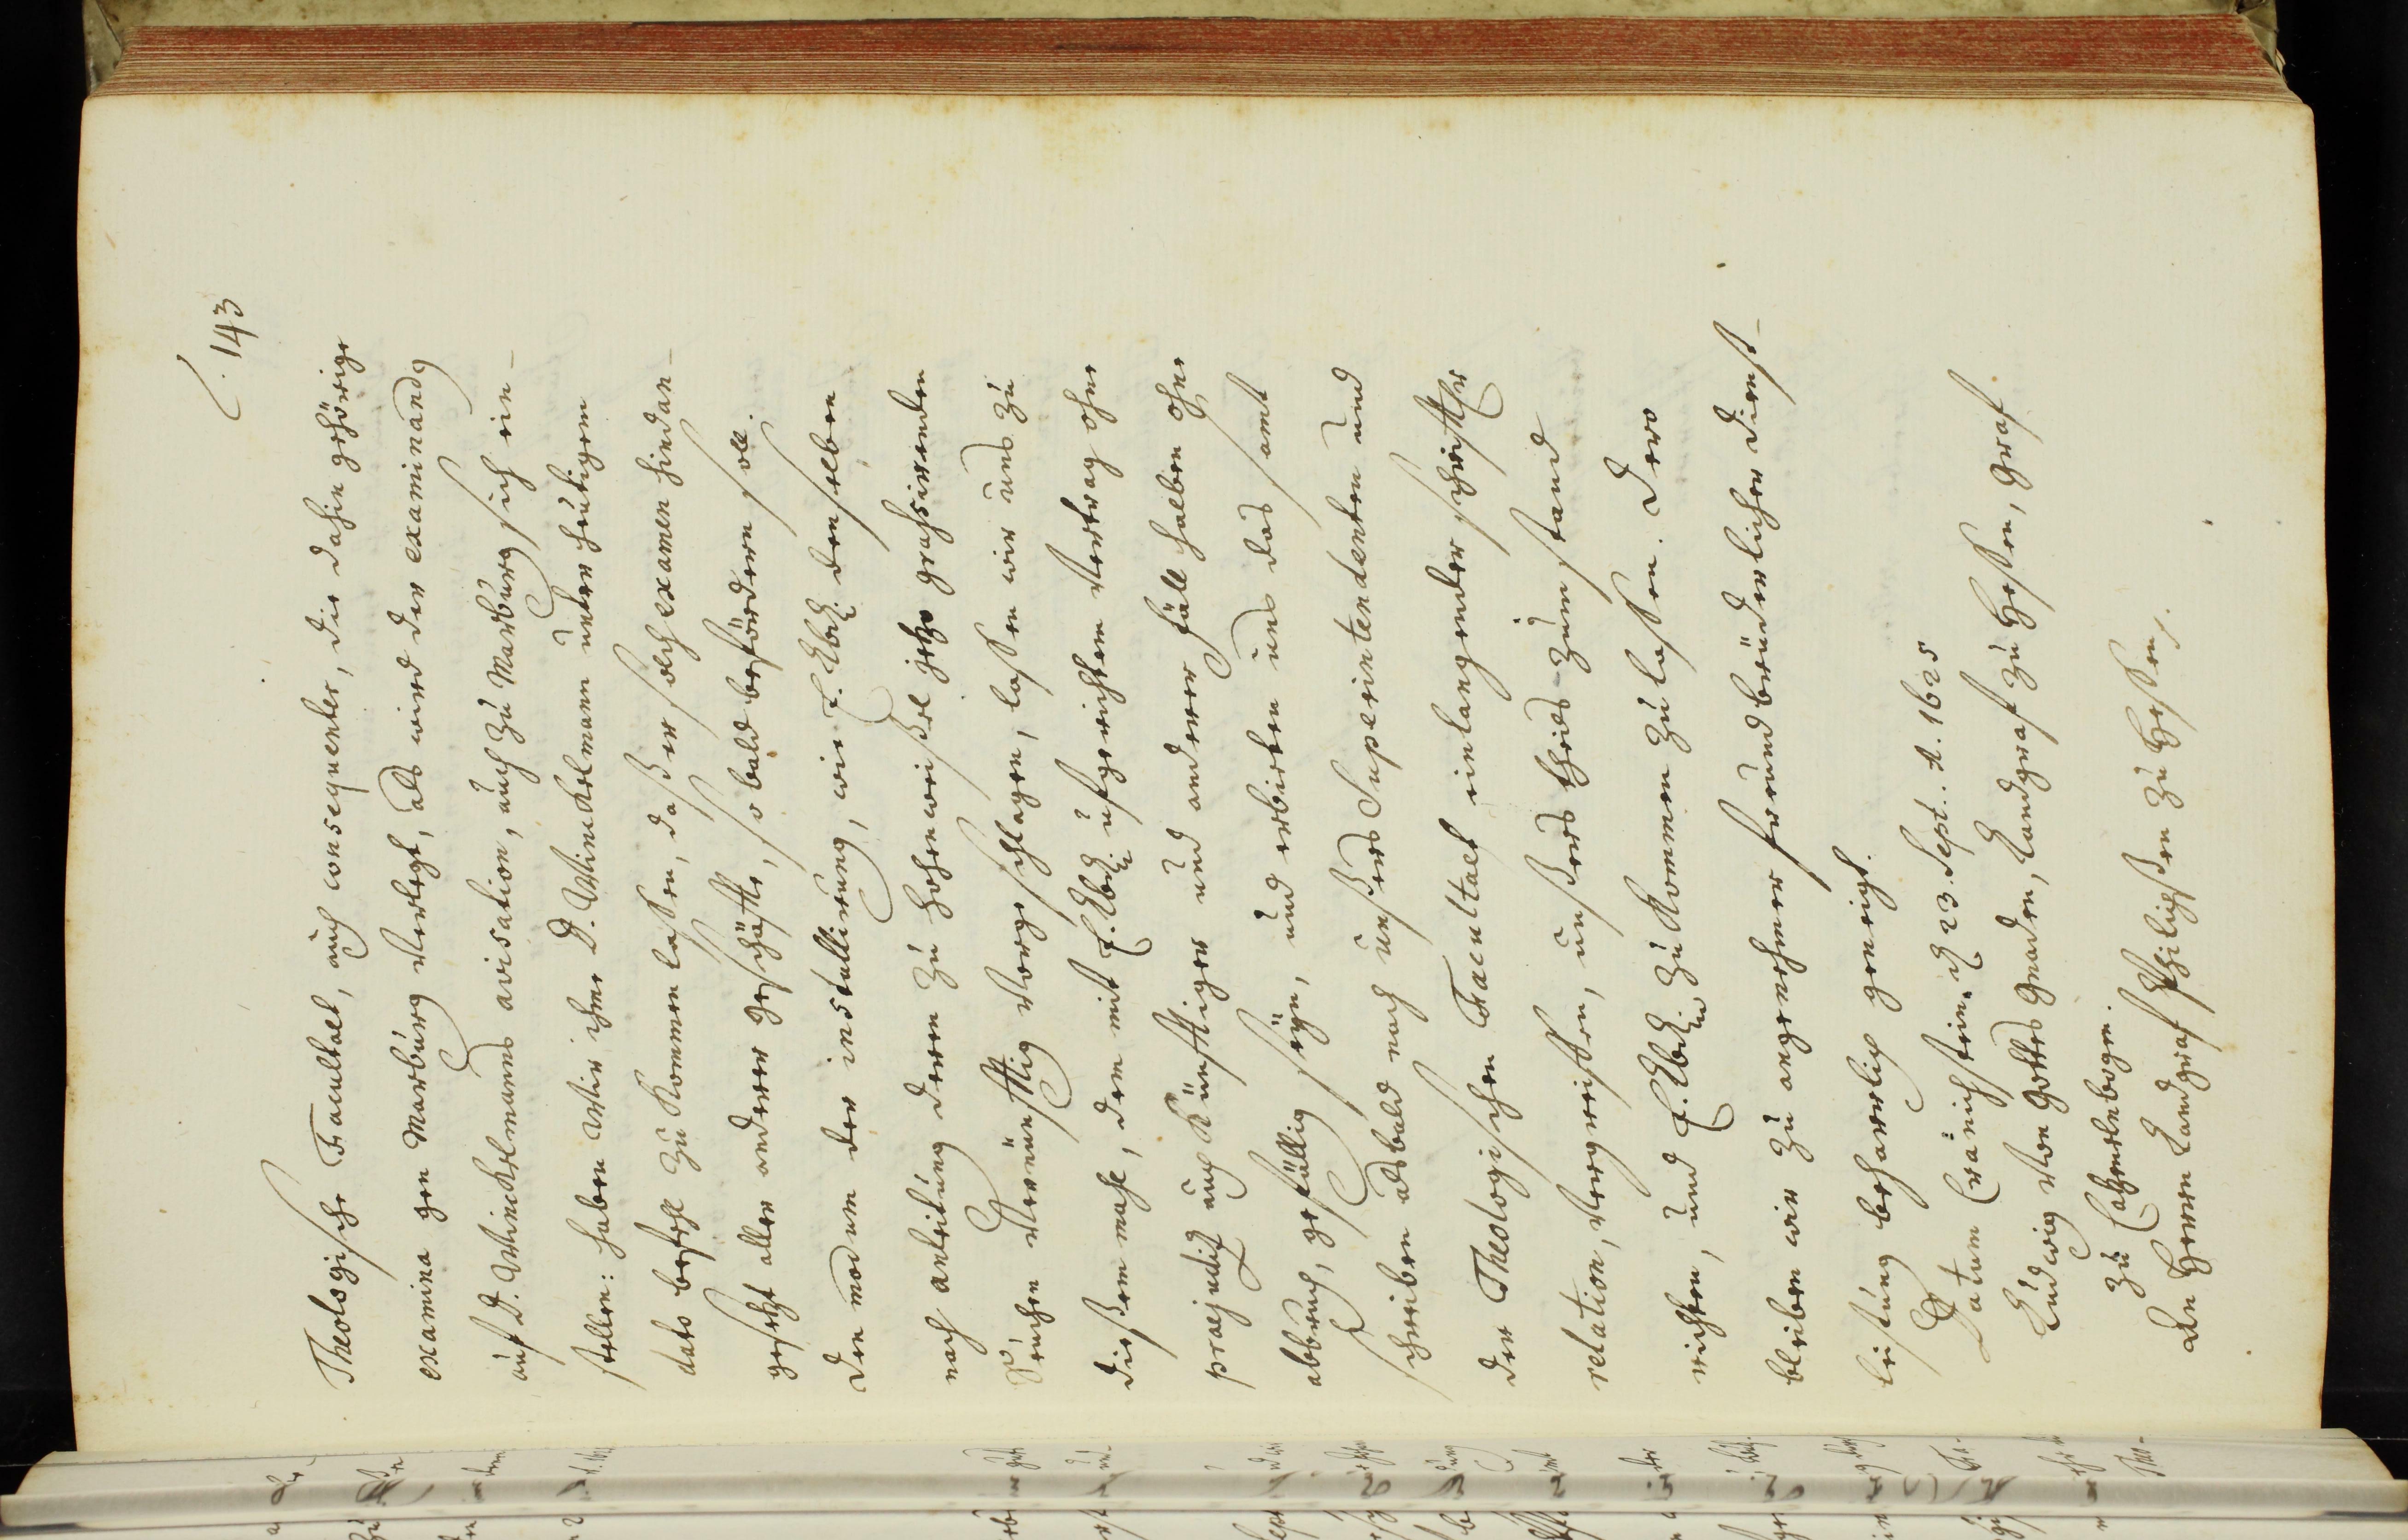 143
Theologische Facultaet, auch consequenter, die dahin gehörige
examina gen Marburg verlegt, als wird der examinandg
auf D. Winckelmanns avisation, auch zu Marburg sich ein-
stellen: haben Wir ihme D. Winckelmann unter heutigem
dato befehl zu kommen laßen, daß er solch examen hindan-
gesetzt aller anderer geschäffte, so bald befördern soll.
Den modum der installirung, wie E. Lbd. denselben
nach anleitung deren zu hohenweißel jetzo grassirenden
Seuchen vernünfftig vorgeschlagen, laßen wir uns zu
dießem mahl, dem mit E. Lbd. ufgerichtem Vertrag ohne
praejudiz auch künfftiger und anderer fälle halben ohne
abbruch, gefällig seyn, und erbieten uns das samt
schreiben alsbald nach unßers Superintendenten und
der Theologischen Facultaet einlangender schrifftl.
relation, vergreiffen, unßers theils zum stand
richten, und E. Lbd. zu kommen zu laßen. Dero
bleiben wir zu angenehmer freundbrüderlicher dienst-
leistung beharrlich geneigt.
Datum Cränichstein, 23. Sept. A. 1625
Ludwig von Gottes Gnaden, Landgraf zu Heßen, Graf
zu Catzenelnbogen.
An Herrn Landgraf Philipßen zu Heßen.